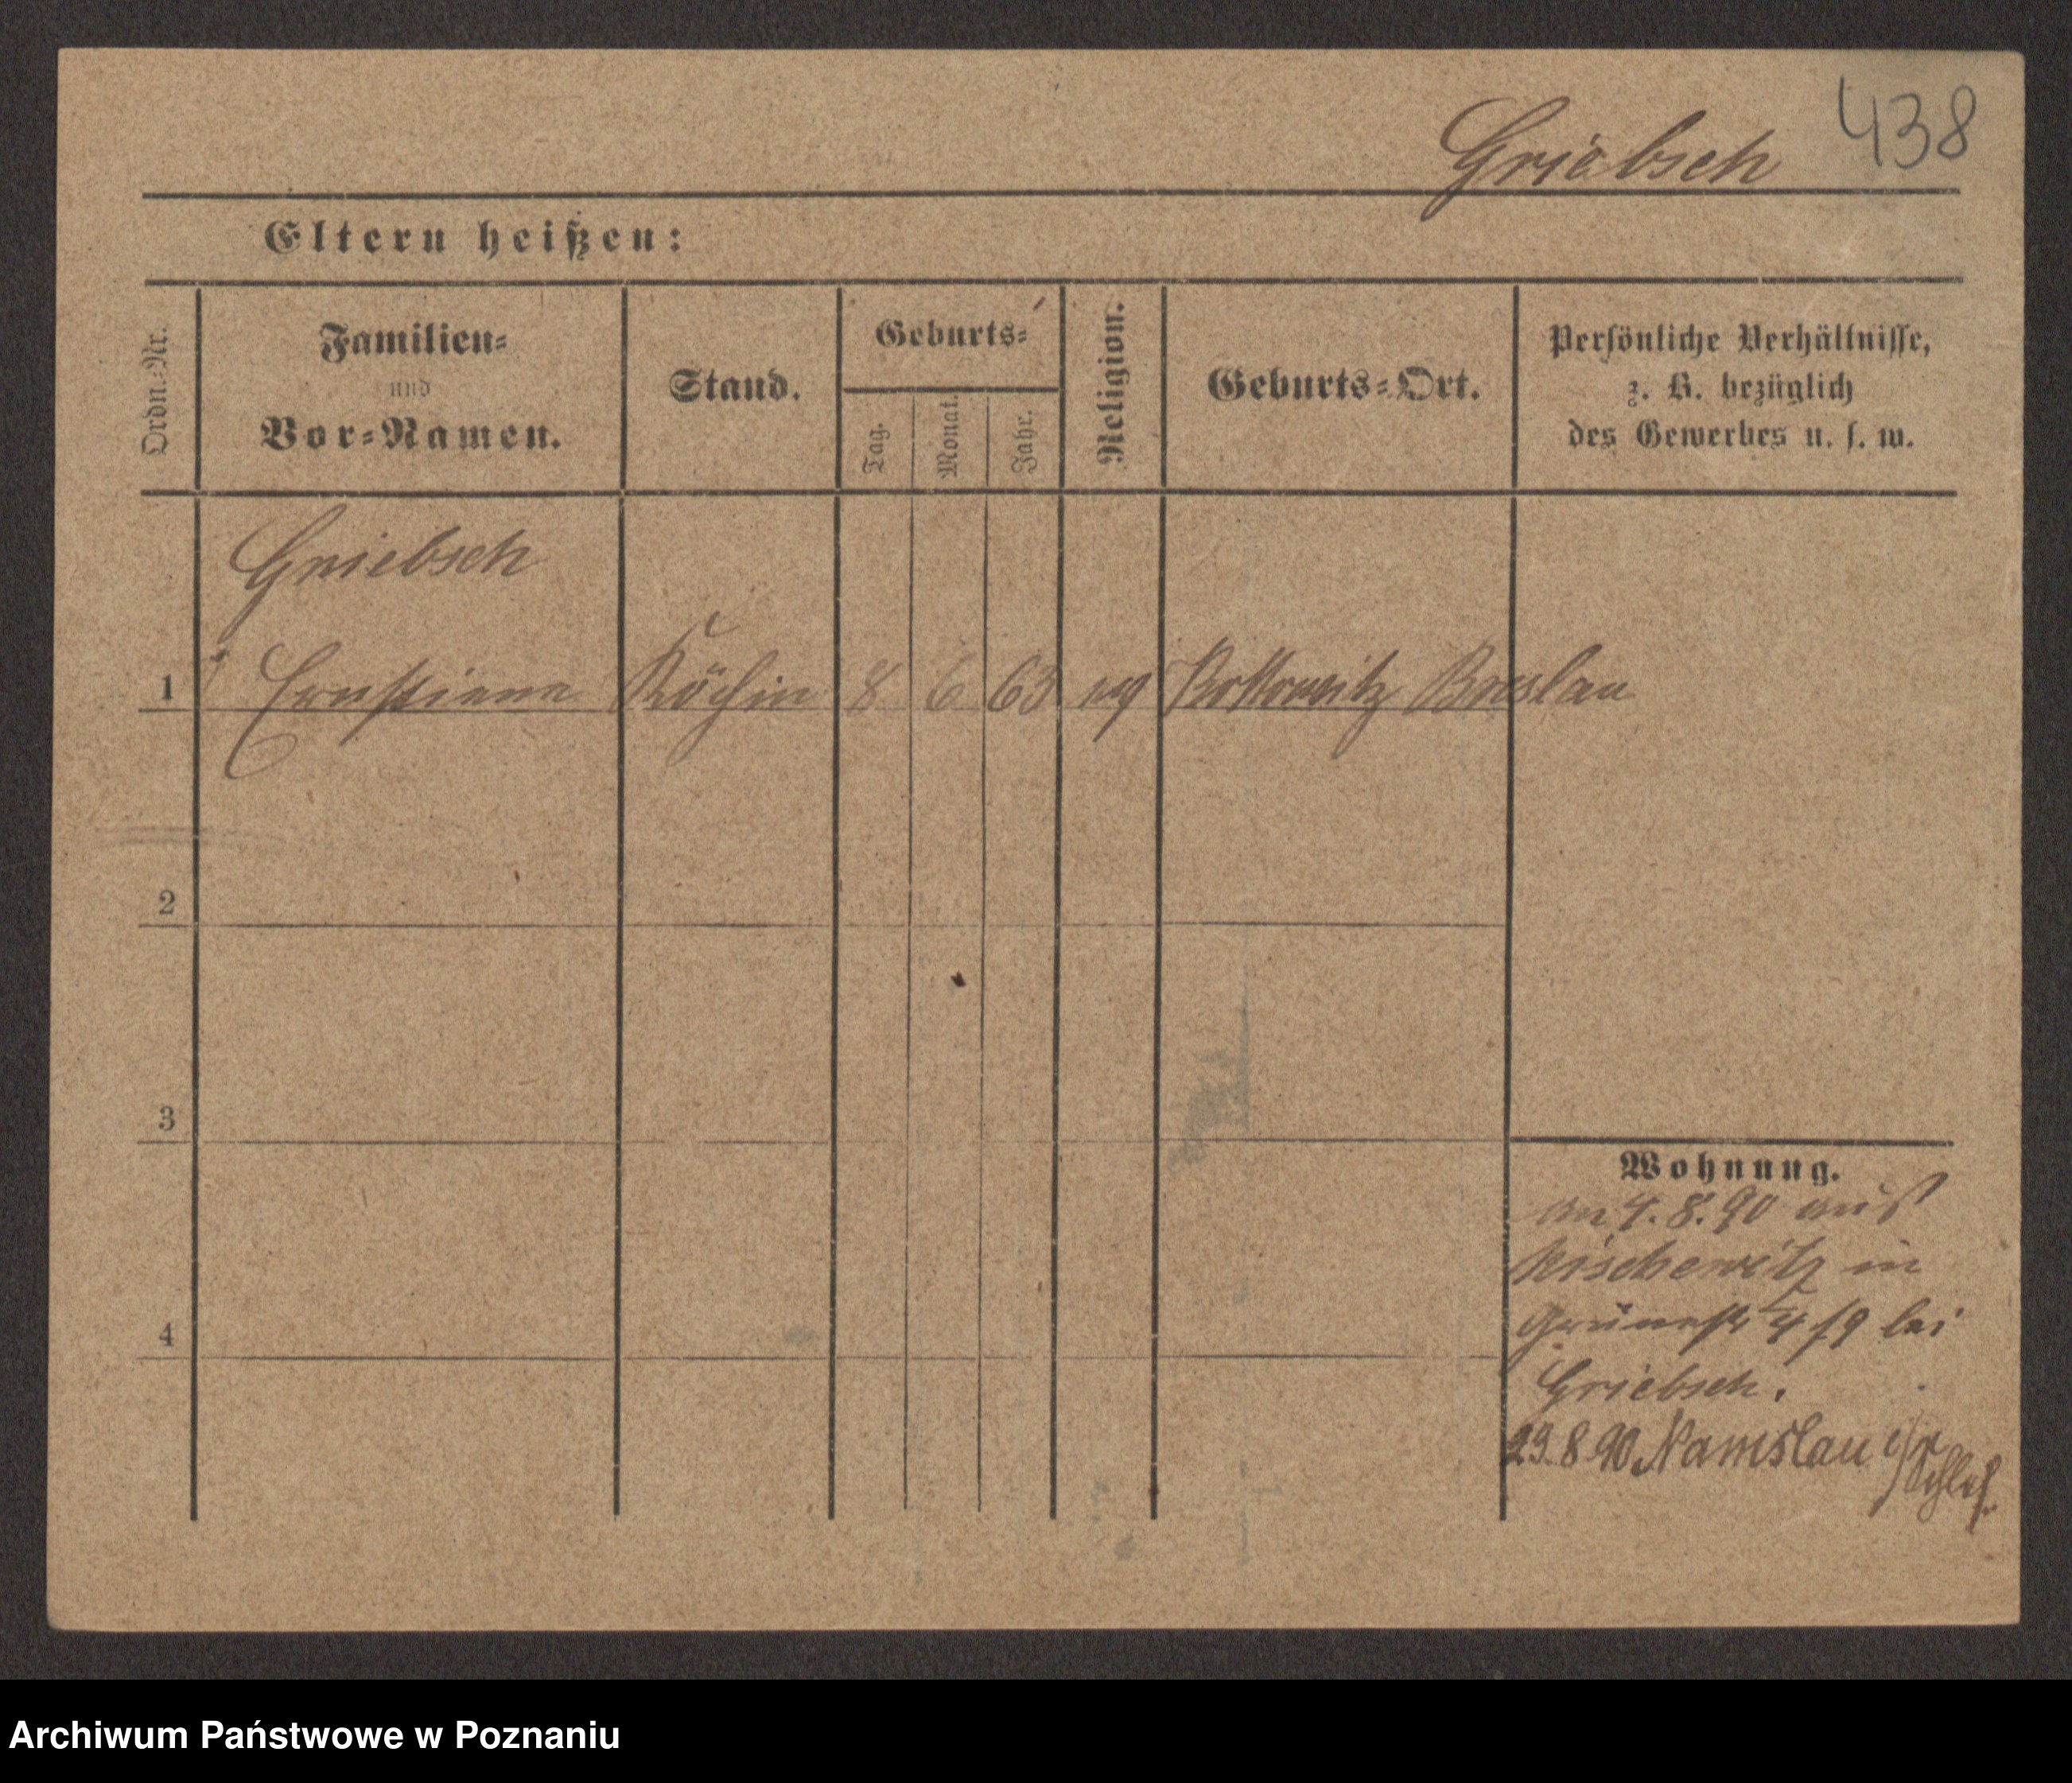 438
Griebsch
Eltern heißen:
Ordn.-Nr.
Familien-
und
Vor-Namen.
Stand.
Geburts-
Tag.
Monat.
Jahr.
Religion.
Geburts-Ort.
Persönliche Verhältnisse,
z. B. bezüglich
des Gewerbes u. s. w.
Griebsch
1 Ernstiene Köchin 8 6 63 evg Breslau
2
3
4
Wohnung.
an 4.8.90 aus
in
Grünestr 4/9 bei
Griebsch.
29.8.90 Namslau i/
Schles.
Archiwum Państwowe w Poznaniu